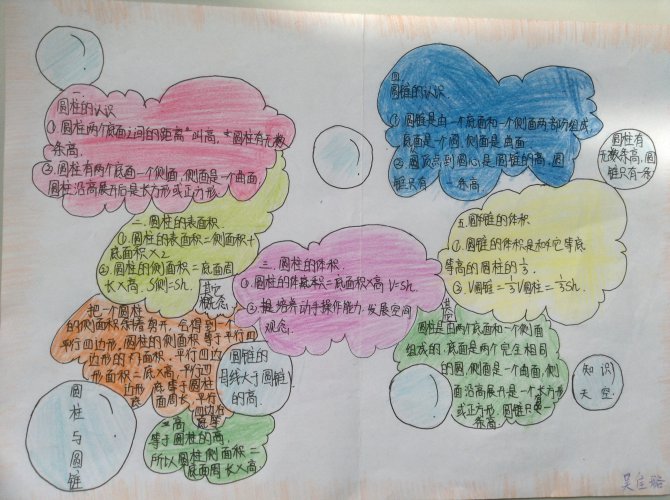 一.
圆柱的认识
①圆柱两个底面之间的距离叫高,圆柱有无数
条高.
②圆柱有两个底面一个侧面,侧面是一个曲面,
圆柱沿高展开后是长方形或正方形.
二.圆柱的表面积
①圆柱的表面积=侧面积+
底面积×2
②圆柱的侧面积=底面周
长×高. S侧=Sh.
其它
概念
三.圆柱的体积
①.圆柱的体积=底面积×高 V=Sh.
②.培养动手操作能力,发展空间
观念.
把一个圆柱
的侧面积剪开,它得到一个
平行四边形,圆柱的侧面积等于平行四
边形的面积,平行四边
形面积=底×高,平行四
边形底等于圆柱
底面周长,平行
四边形
高
等于圆柱的高,
所以圆柱侧面积=
底面周长×高
圆锥的
母线大于圆锥
的高.
圆柱与圆锥
四
圆锥的认识
①圆锥是由一个底面和一个侧面两部份组成
底面是一个圆,侧面是曲面
②圆顶点到圆心是圆锥的高,圆
锥只有一条高.
圆柱有
无数条高,圆
锥只有一条
五.圆锥的体积
①.圆锥的体积是和它等底
等高的圆柱的1/3.
②.V圆锥=1/3V圆柱=1/3Sh.
圆柱是由两个底面和一个侧面
组成的.底面是两个完全相同
的圆,侧面是一个曲面,侧
面沿高展开是一个长方形
或正方形.圆锥只有一
条高
知识
天空